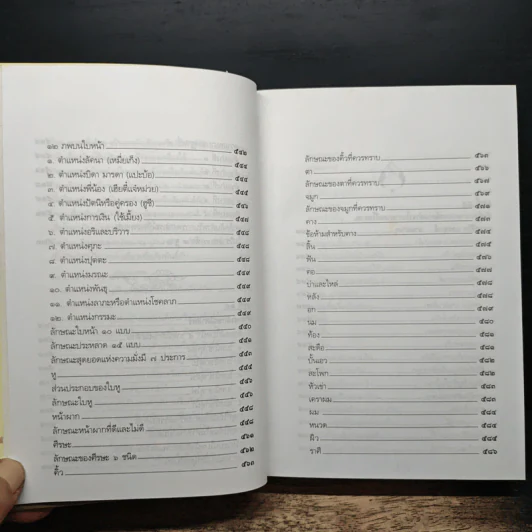 ๑๒ ภพบนใบหน้า ๕๔๒
๑. ตำแหน่งลัคนา (เหมี่ยเก็ง) ๕๔๔
๒. ตำแหน่งบิดา มารดา (แปะบ้อ) ๕๔๔
๓. ตำแหน่งพี่น้อง (เฮียตี๋แจ๋หม่วย) ๕๔๕
๔. ตำแหน่งปัตนิหรือคู่ครอง (ฮูชี) ๕๔๖
๕. ตำแหน่งการเงิน (ใช้เม้ง) ๕๔๗
๖. ตำแหน่งอริและบริวาร ๕๔๘
๗. ตำแหน่งศุภะ ๕๔๘
๘. ตำแหน่งปุตตะ ๕๔๘
๙. ตำแหน่งมรณะ ๕๔๙
๑๐. ตำแหน่งพันธุ ๕๔๙
๑๑. ตำแหน่งลาภะหรือตำแหน่งโชคลาภ ๕๔๙
๑๒. ตำแหน่งกรรมะ ๕๔๙
ลักษณะใบหน้า ๑๐ แบบ ๕๕๐
ลักษณะประหลาด ๑๕ แบบ ๕๕๑
ลักษณะสุดยอดแห่งความมั่งมี ๗ ประการ ๕๕๓
หู ๕๕๕
ส่วนประกอบของใบหู ๕๕๖
ลักษณะใบหู ๕๕๖
หน้าผาก ๕๕๘
ลักษณะหน้าผากที่ดีและไม่ดี ๕๕๘
ศีรษะ ๕๖๑
ลักษณะของศีรษะ ๖ ชนิด ๕๖๒
คิ้ว ๕๖๓
ลักษณะของคิ้วที่ควรทราบ ๕๖๓
ตา ๕๖๖
ลักษณะของตาที่ควรทราบ ๕๖๗
จมูก ๕๖๙
ลักษณะของจมูกที่ควรทราบ ๕๗๑
คาง ๕๗๓
ข้อห้ามสำหรับคาง ๕๗๔
ลิ้น ๕๗๕
ฟัน ๕๗๖
คอ ๕๗๗
บ่าและไหล่ ๕๗๘
หลัง ๕๗๘
อก ๕๗๙
นม ๕๘๐
ท้อง ๕๘๑
สะดือ ๕๘๑
บั้นเอว ๕๘๒
สะโพก ๕๘๒
หัวเข่า ๕๘๓
เคราผม ๕๘๓
ผม ๕๘๔
หนวด ๕๘๔
ผิว ๕๘๕
ราศี ๕๘๖